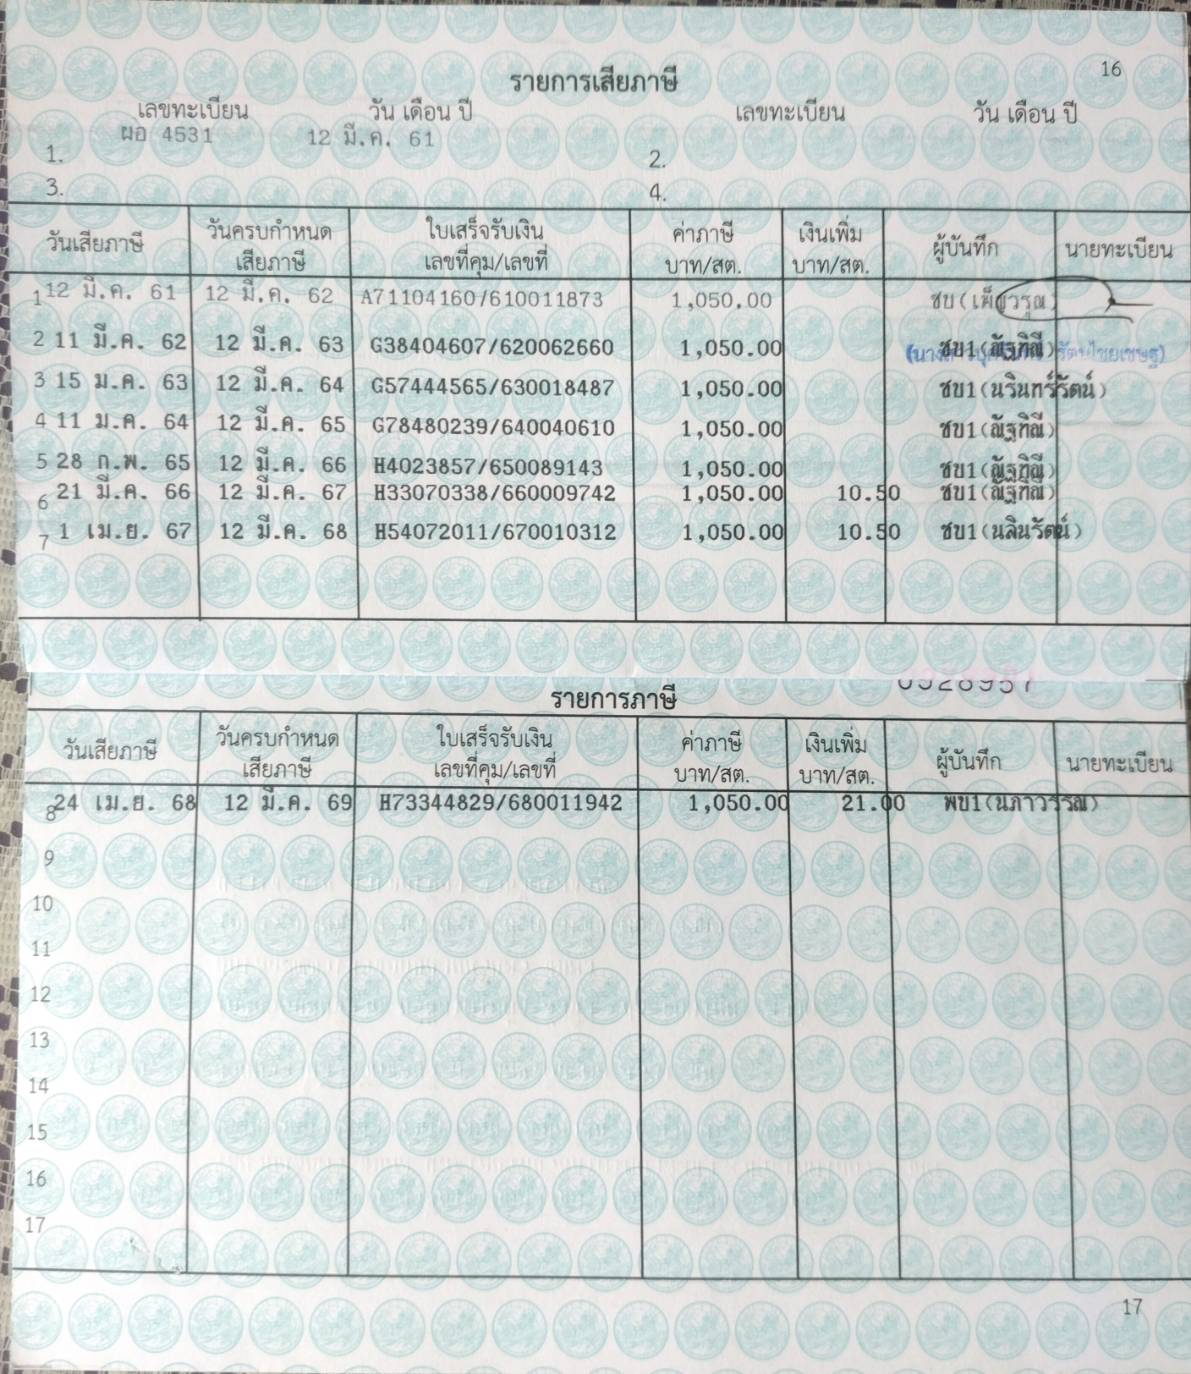 16
รายการเสียภาษี
เลขทะเบียน วัน เดือน ปี เลขทะเบียน วัน เดือน ปี
ผอ 4531 12 มี.ค. 61
1. 2.
3. 4.
วันเสียภาษี วันครบกำหนดเสียภาษี ใบเสร็จรับเงิน เลขที่คุม/เลขที่ ค่าภาษี บาท/สต. เงินเพิ่ม บาท/สต. ผู้บันทึก นายทะเบียน
1 12 มี.ค. 61 12 มี.ค. 62 A71104160/610011873 1,050.00
2 11 มี.ค. 62 12 มี.ค. 63 G38404607/620062660 1,050.00 ชบ1(ณัฐทิณี)
3 15 ม.ค. 63 12 มี.ค. 64 G57444565/630018487 1,050.00 ชบ1(นรินทร์รัตน์)
4 11 ม.ค. 64 12 มี.ค. 65 G78480239/640040610 1,050.00 ชบ1(ณัฐทิณี)
5 28 ก.พ. 65 12 มี.ค. 66 H4023857/650089143 1,050.00 ชบ1(ณัฐทิณี)
6 21 มี.ค. 66 12 มี.ค. 67 H33070338/660009742 1,050.00 10.50 ชบ1(ณัฐทิณี)
7 1 เม.ย. 67 12 มี.ค. 68 H54072011/670010312 1,050.00 10.50 ชบ1(นลินรัตน์)
รายการภาษี
วันเสียภาษี วันครบกำหนดเสียภาษี ใบเสร็จรับเงิน เลขที่คุม/เลขที่ ค่าภาษี บาท/สต. เงินเพิ่ม บาท/สต. ผู้บันทึก นายทะเบียน
8 24 เม.ย. 68 12 มี.ค. 69 H73344829/680011942 1,050.00 21.00 พบ1(นภาวรรณ)
9
10
11
12
13
14
15
16
17
17